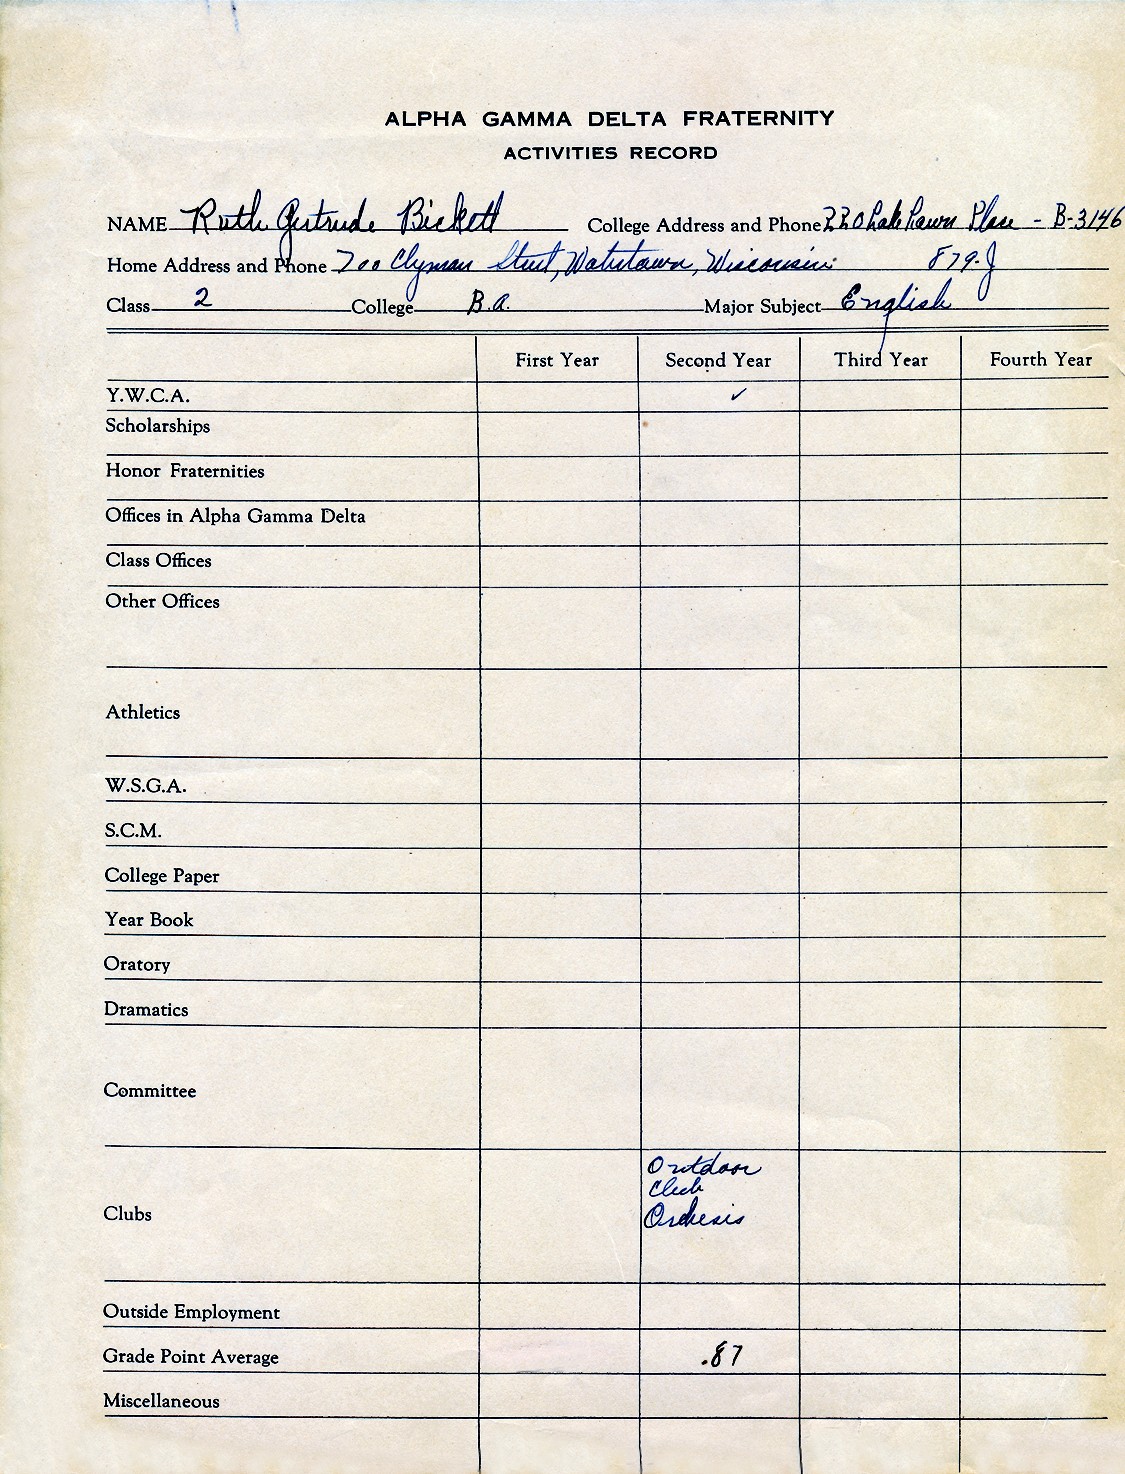 ALPHA GAMMA DELTA FRATERNITY
ACTIVITIES RECORD
NAME Ruth Gertrude Bickett College Address and Phone 220 Lake Lawn Place - B-3146
Home Address and Phone 700 Clyman Street, Watertown, Wisconsin 879-J
Class 2 College B.A. Major Subject English
First Year Second Year Third Year Fourth Year
Y.W.C.A. ✓
Scholarships
Honor Fraternities
Offices in Alpha Gamma Delta
Class Offices
Other Offices
Athletics
W.S.G.A.
S.C.M.
College Paper
Year Book
Oratory
Dramatics
Committee
Outdoor
Club
Clubs Orchesis
Outside Employment
Grade Point Average .87
Miscellaneous